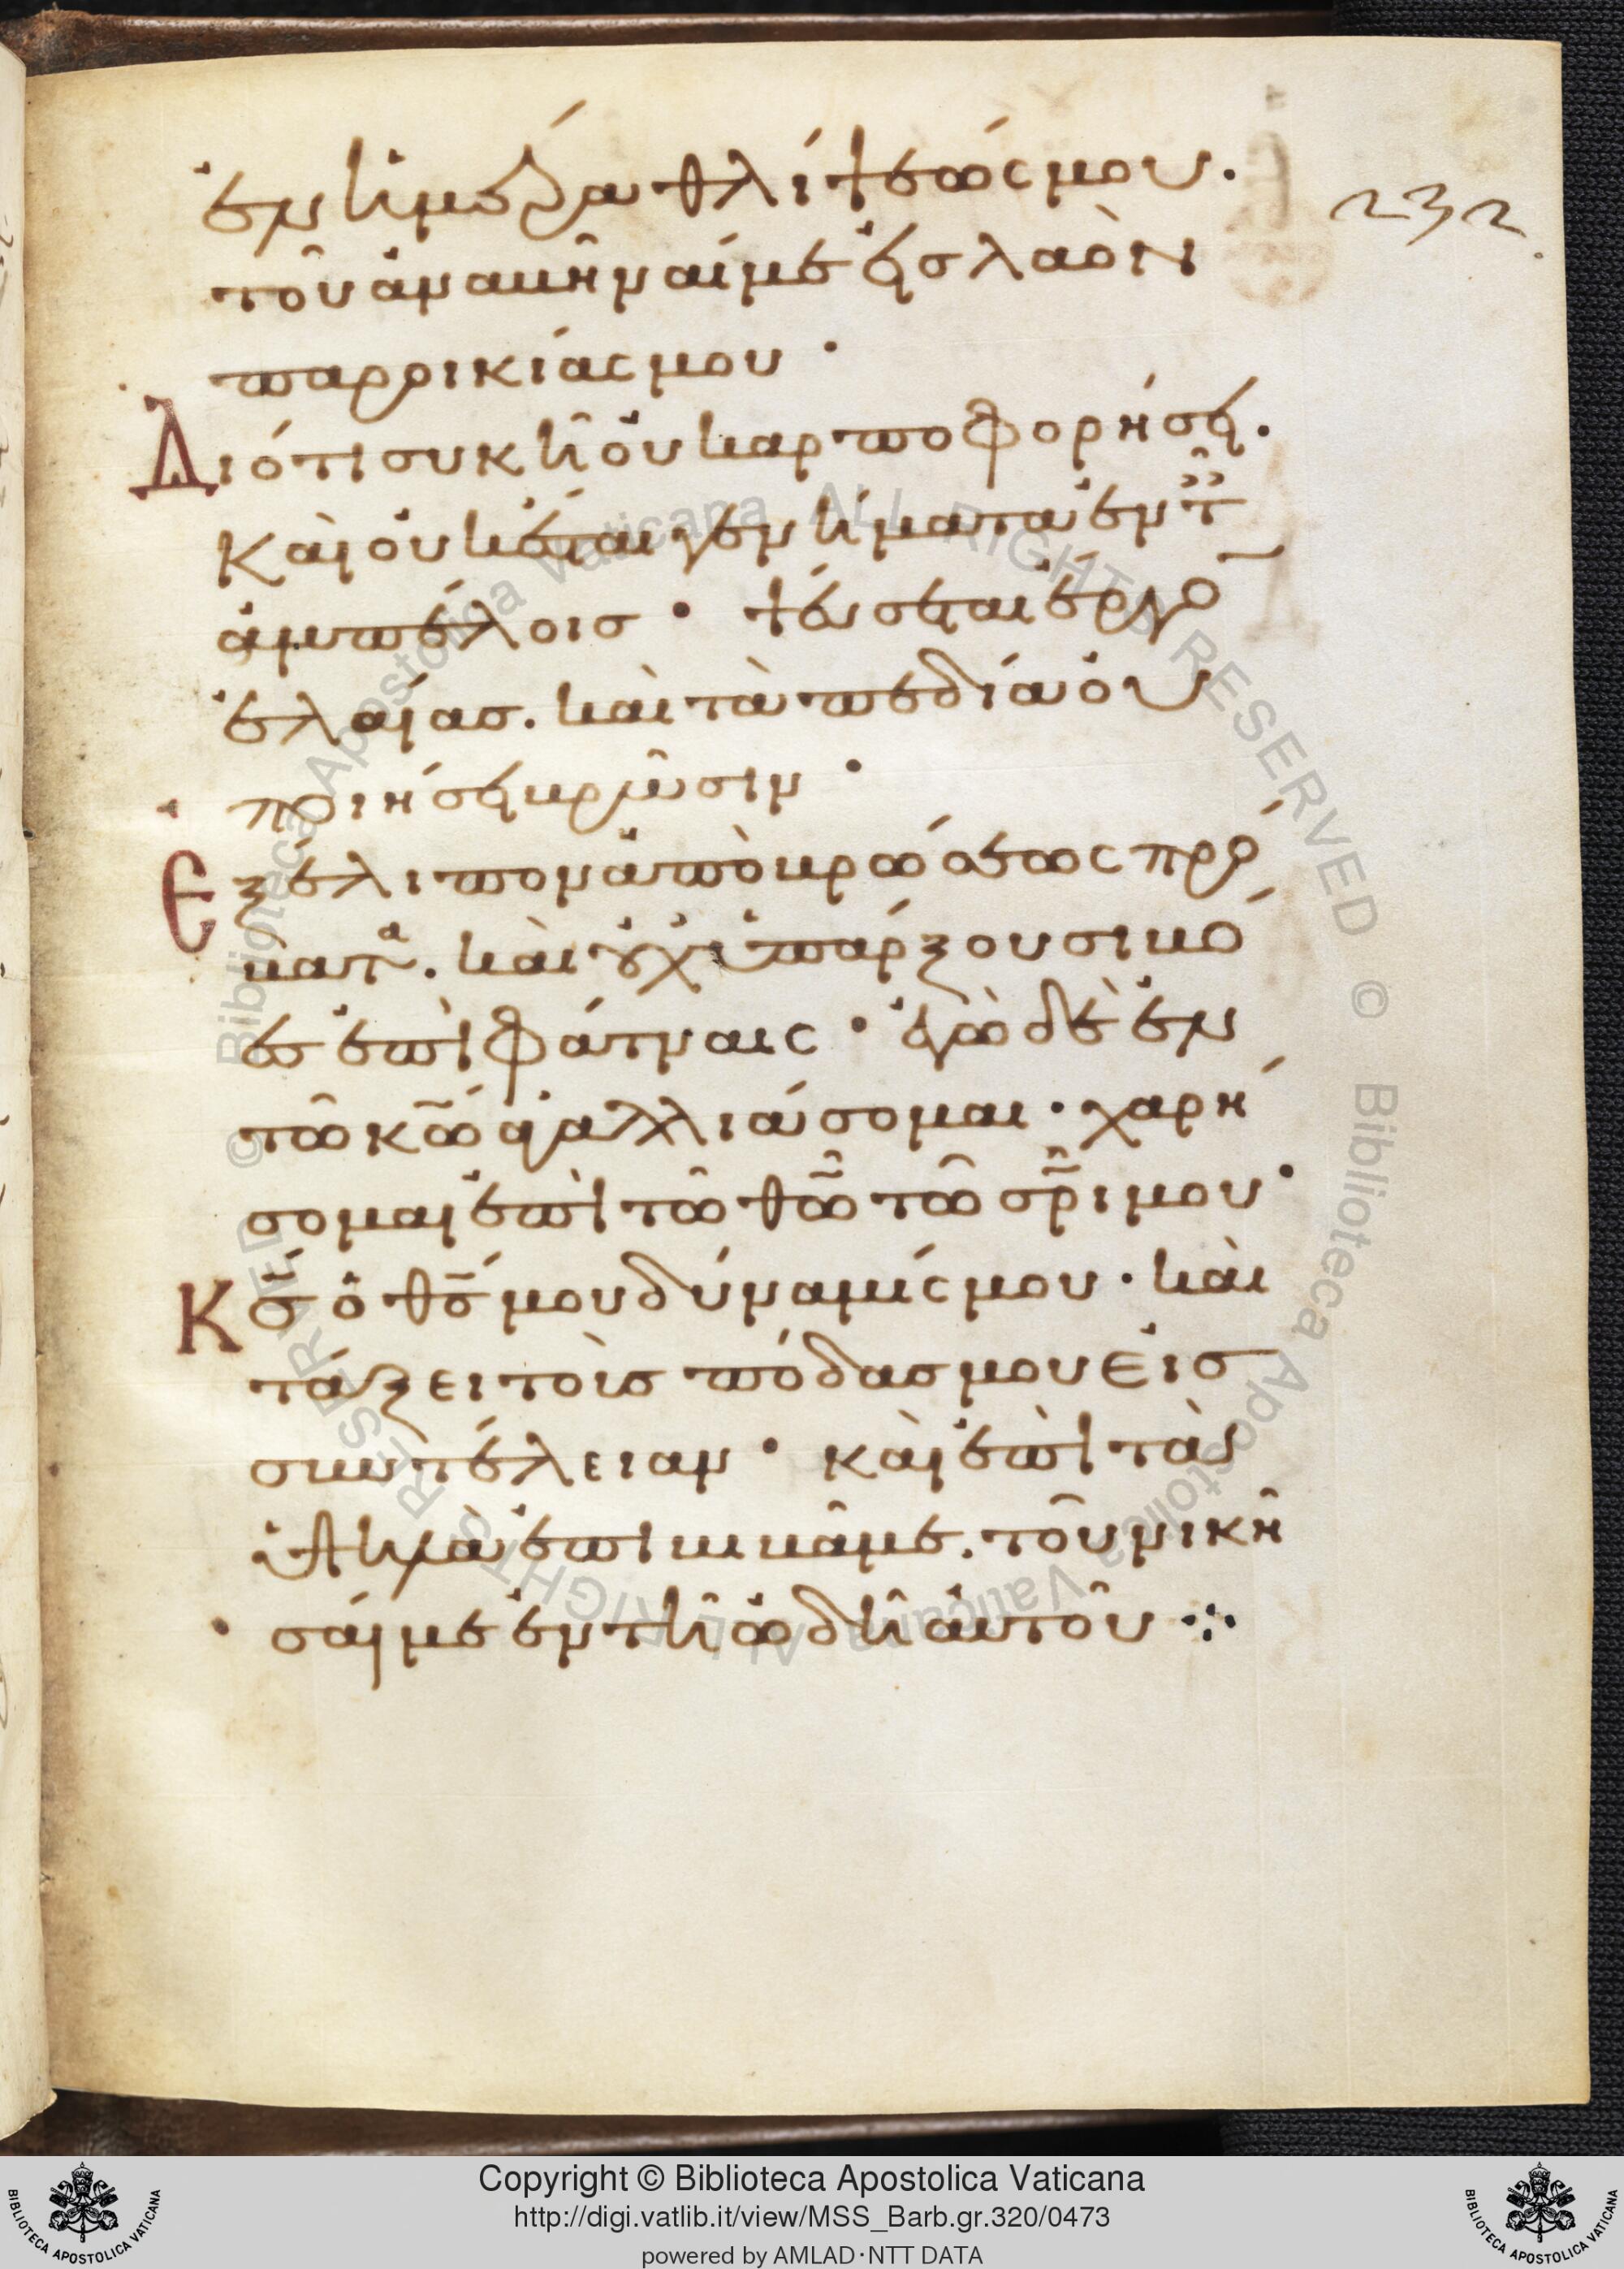 ἐν ἡμέρα θλίψεώς μου.
τοῦ ἀναβῆναί με εἰς λαὸν
παροικίας μου·
Διότι συκῆ οὐ καρποφορήσει.
Καὶ οὐκ ἔσται γενήματα ἐν τ̈
ἀμπέλοις· ψεύσεται ἔργο
ἐλαίας. καὶ τὰ πεδία οὐ
ποιήσει βρῶσιν·
Ἐξέλιπον ἀπὸ βρώσεως πρό
βατα. καὶ οὐχ ὑπάρξουσι βό
ες ἐπὶ φάτναις· ἐγὼ δὲ ἐν
τῶ κω̄ ἀγαλλιάσομαι· χαρή
σομαι ἐπὶ τῶ θω̄ τῶ σρ̄ι μου·
Κς̄ ὁ θς̄ μου δύναμίς μου· καὶ
τάξει τοὺς πόδας μου εἰς
συντέλειαν· καὶ ἐπὶ τὰ
ὑψηλὰ ἐπιβιβᾶ με. τοῦ νικῆ
σαί με ἐν τῆ ὠδῆ αὐτοῦ ⁘
232
Copyright © Biblioteca Apostolica Vaticana
http://digi.vatlib.it/view/MSS_Barb.gr.320/0473
powered by AMLAD·NTT DATA
BIBLIOTECA APOSTOLICA VATICANA
BIBLIOTECA APOSTOLICA VATICANA
© Biblioteca Apostolica Vaticana ALL RIGHTS RESERVED © Biblioteca Apostolica Vaticana ALL RIGHTS RESERVED